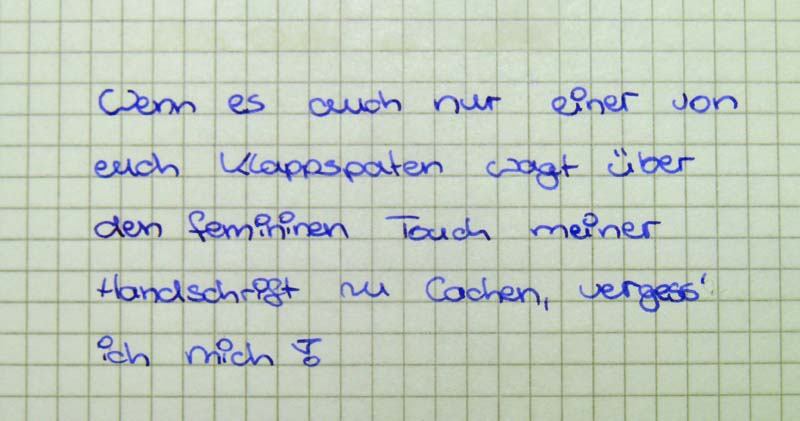 Wenn es auch nur einer von
euch Klappspaten wagt über
den femininen Touch meiner
Handschrift zu Lachen, vergess'
ich mich!